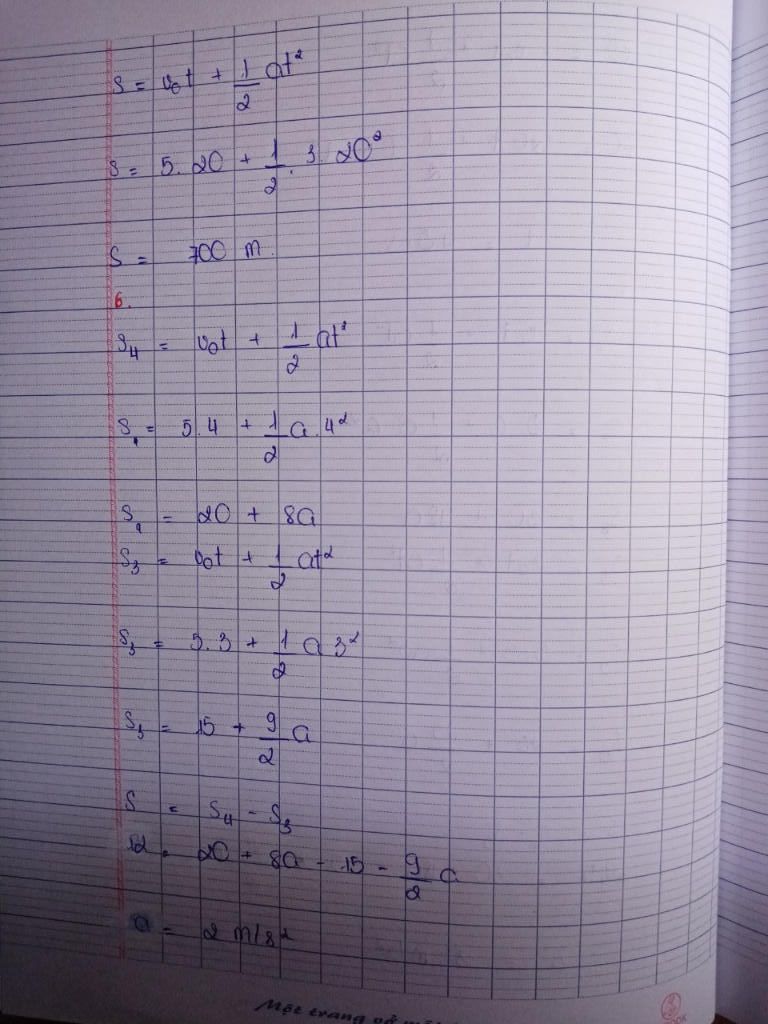 S = v₀t + 1/2 at²
S = 5.20 + 1/2 . 3. 20²
S = 700 m.
6.
S₄ = v₀t + 1/2 at²
S₄ = 5.4 + 1/2 a.4²
S₄ = 20 + 8a
S₃ = v₀t + 1/2 at²
S₃ = 5.3 + 1/2 a 3²
S₃ = 15 + 9/2 a
S = S₄ - S₃
12 = 20 + 8a - 15 - 9/2 a
a = 2 m/s²
Một trang vở